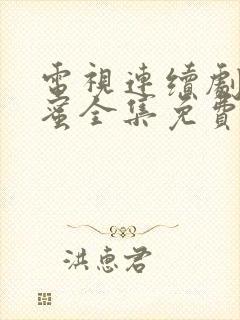 電視連續劇
蜜全集免費
洪惠君